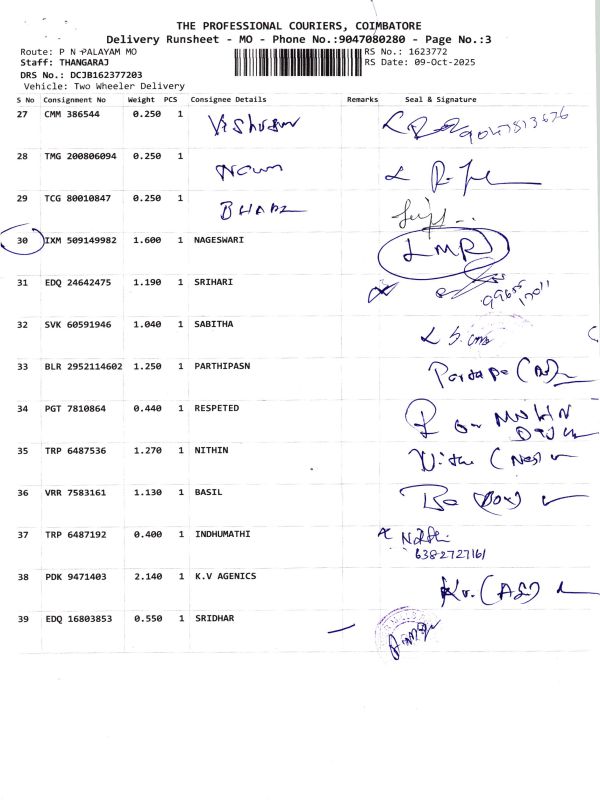 THE PROFESSIONAL COURIERS, COIMBATORE
Delivery Runsheet - MO - Phone No.:9047080280 - Page No.:3
Route: P N PALAYAM MO RS No.: 1623772
Staff: THANGARAJ RS Date: 09-Oct-2025
DRS No.: DCJB162377203
Vehicle: Two Wheeler Delivery
S No Consignment No Weight PCS Consignee Details Remarks Seal & Signature
27 CMM 386544 0.250 1
28 TMG 200806094 0.250 1
29 TCG 80010847 0.250 1
30 IXM 509149982 1.600 1 NAGESWARI LMR
31 EDQ 24642475 1.190 1 SRIHARI
32 SVK 60591946 1.040 1 SABITHA
33 BLR 2952114602 1.250 1 PARTHIPASN
34 PGT 7810864 0.440 1 RESPETED
35 TRP 6487536 1.270 1 NITHIN
36 VRR 7583161 1.130 1 BASIL
37 TRP 6487192 0.400 1 INDHUMATHI
6382727161
38 PDK 9471403 2.140 1 K.V AGENICS
39 EDQ 16803853 0.550 1 SRIDHAR